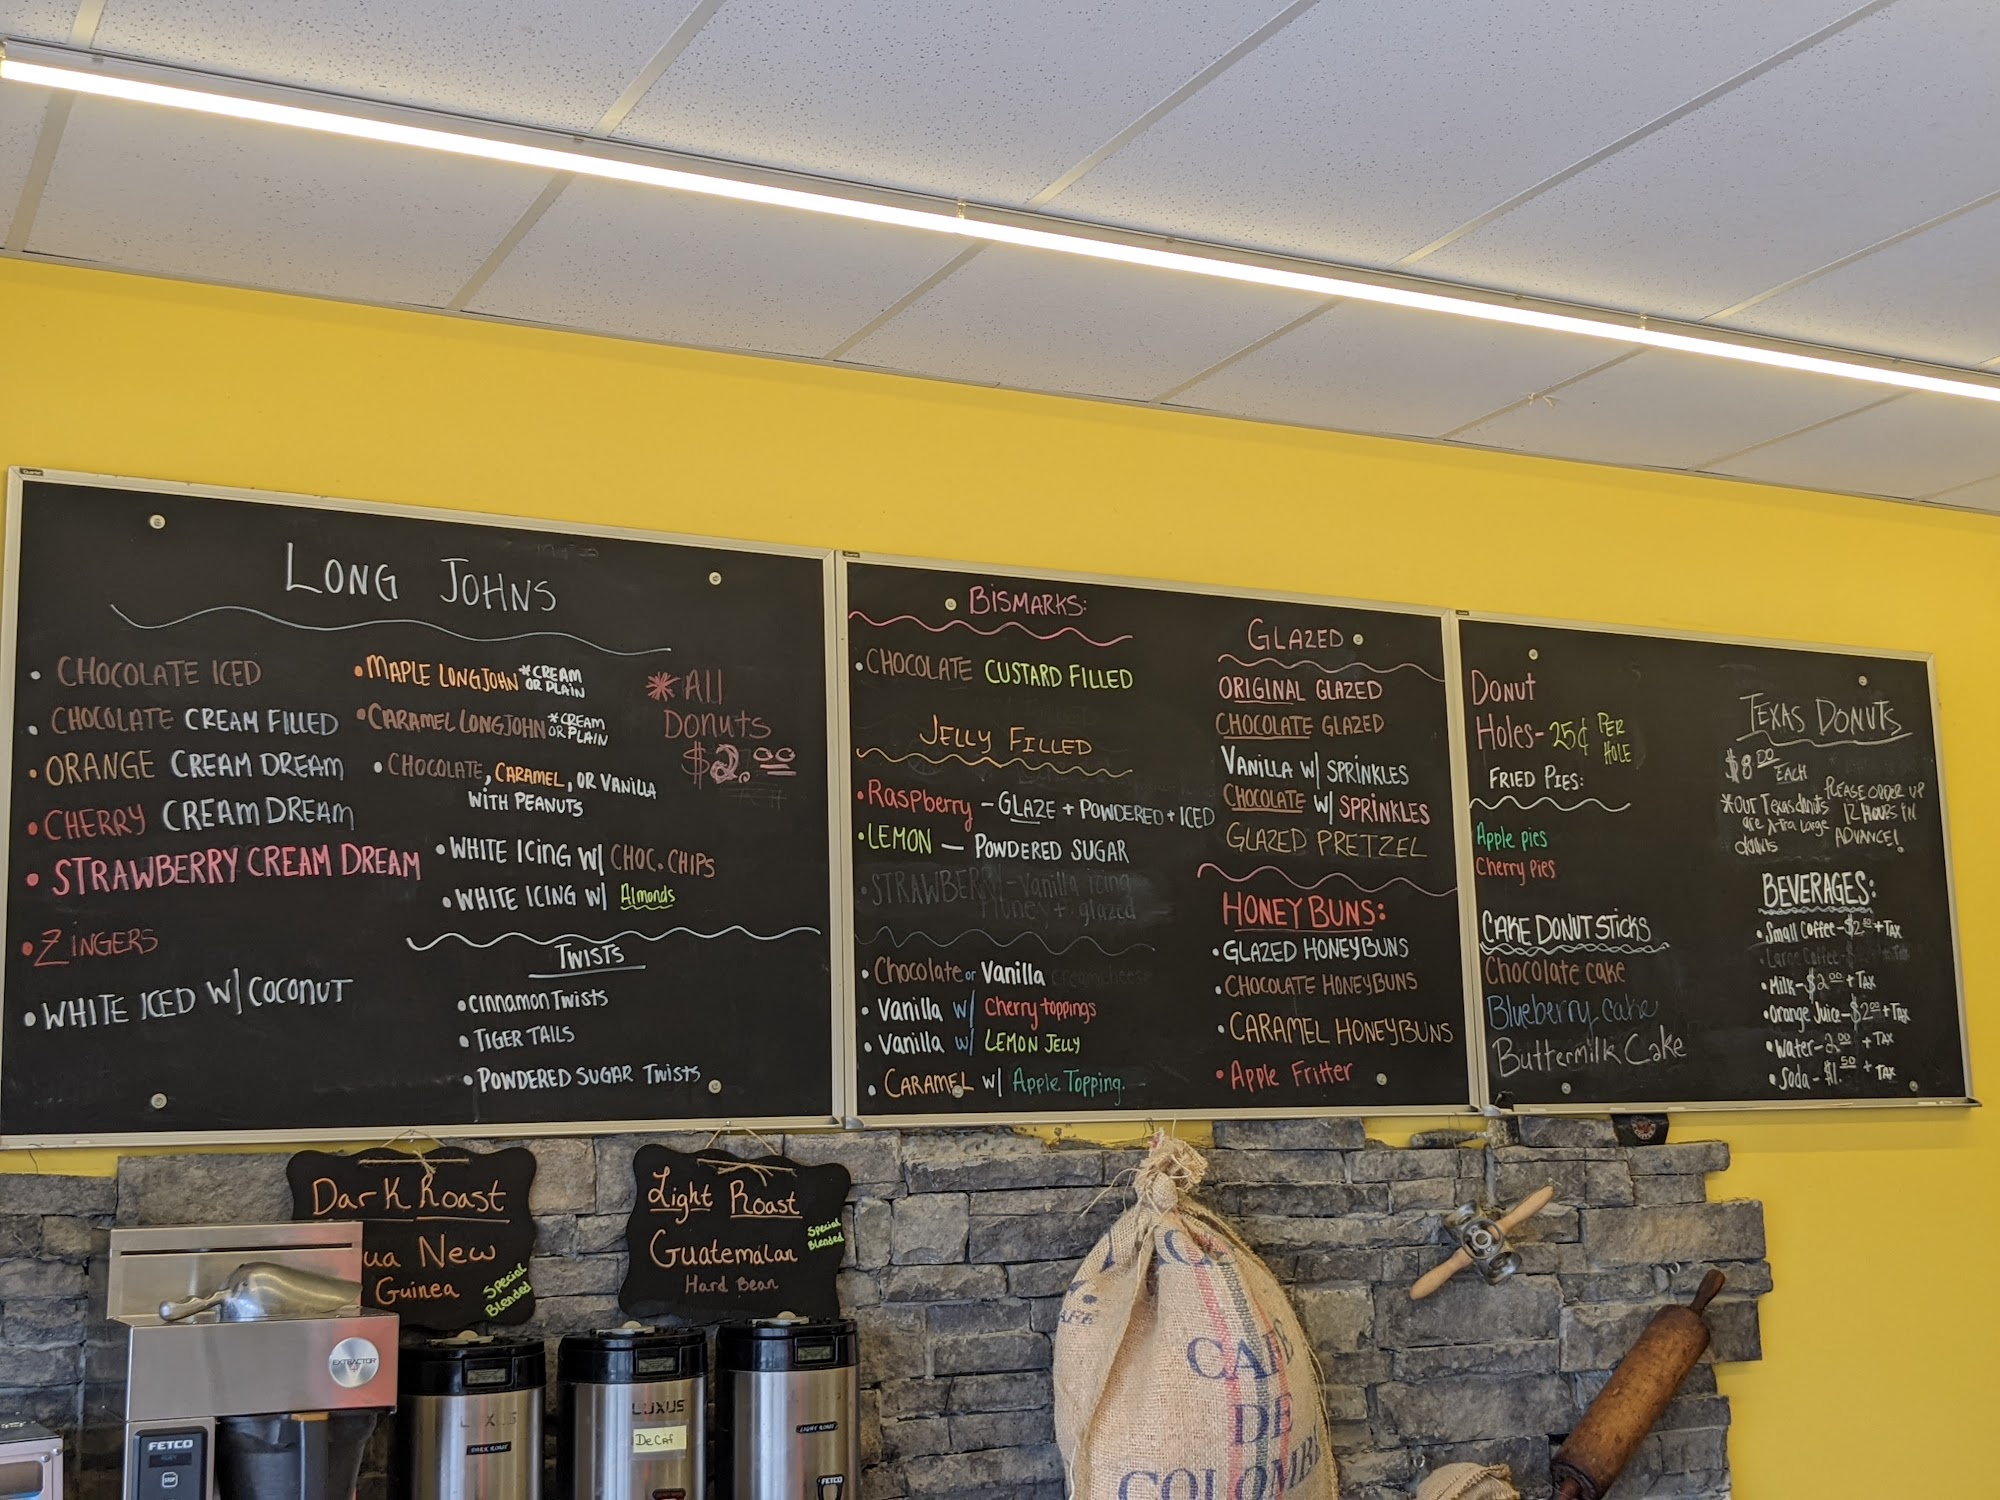 LONG JOHNS
• CHOCOLATE ICED
• CHOCOLATE CREAM FILLED
• ORANGE CREAM DREAM
• CHERRY CREAM DREAM
• STRAWBERRY CREAM DREAM
• ZINGERS
• WHITE ICED W/ COCONUT
• MAPLE LONGJOHN *CREAM
OR PLAIN
• CARAMEL LONGJOHN *CREAM
OR PLAIN
• CHOCOLATE, CARAMEL, OR VANILLA
WITH PEANUTS
• WHITE ICING W/ CHOC. CHIPS
• WHITE ICING W/ Almonds
*All
Donuts
$2.00
TWISTS
• CINNAMON TWISTS
• TIGER TAILS
• POWDERED SUGAR TWISTS
BISMARKS:
• CHOCOLATE CUSTARD FILLED
JELLY FILLED
• Raspberry - GLAZE + POWDERED + ICED
• LEMON - POWDERED SUGAR
• STRAWBERRY - Vanilla icing
glazed
• Chocolate or Vanilla creamcheese
• Vanilla w/ Cherry toppings
• Vanilla w/ LEMON JELLY
• CARAMEL W/ Apple Topping.
GLAZED
ORIGINAL GLAZED
CHOCOLATE GLAZED
VANILLA W/ SPRINKLES
CHOCOLATE W/ SPRINKLES
GLAZED PRETZEL
HONEY BUNS:
• GLAZED HONEYBUNS
• CHOCOLATE HONEYBUNS
• CARAMEL HONEYBUNS
• Apple Fritter
Donut
Holes - 25¢ PER
HOLE
FRIED PIES:
Apple pies
Cherry pies
CAKE DONUT STICKS
Chocolate cake
Blueberry cake
Buttermilk Cake
TEXAS DONUTS
$8.00
EACH
*Our Texas donuts
are x-tra large
donuts
PLEASE ORDER UP
12 HOURS IN
ADVANCE!
BEVERAGES:
• Small Coffee - $2.50 + TAX
• Large Coffee
• Milk - $2.00 + TAX
• Orange Juice - $2.00 + TAX
• Water - 2.00 + TAX
• Soda - $1.50 + TAX
Dark Roast
ua New
Guinea
Special
Blended
Light Roast
Guatemalan
Hard Bean
Special
Blended
EXTRACTOR
FETCO
STOP
LUXUS
DARK ROAST
LUXUS
DeCaf
LIGHT ROAST
FETCO
CAFE
DE
COLOMBI